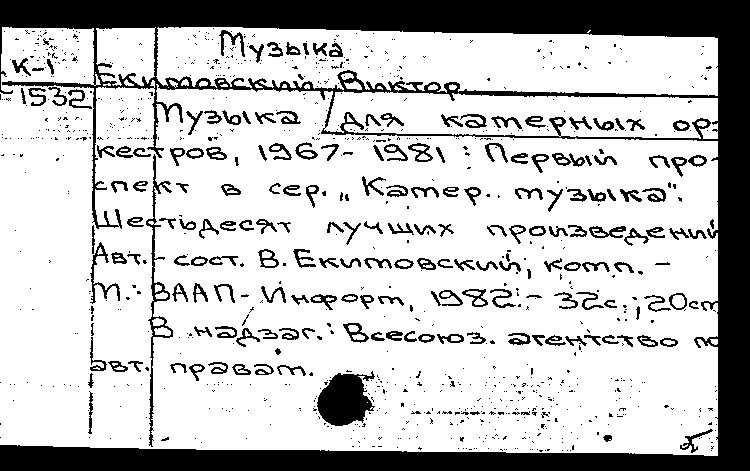 Музыка
К-1
Екимовский, Виктор
1532
Музыка для камерных ор-
кестров, 1967-1981 : Первый про-
спект в сер. „Камер. музыка".
Шестьдесят лучших произведений
Авт.-сост. В. Екимовский, комп. -
М.: ВААП-Информ, 1982. - 32с.; 20см
В надзаг.: Всесоюз. агентство по
авт. правам.